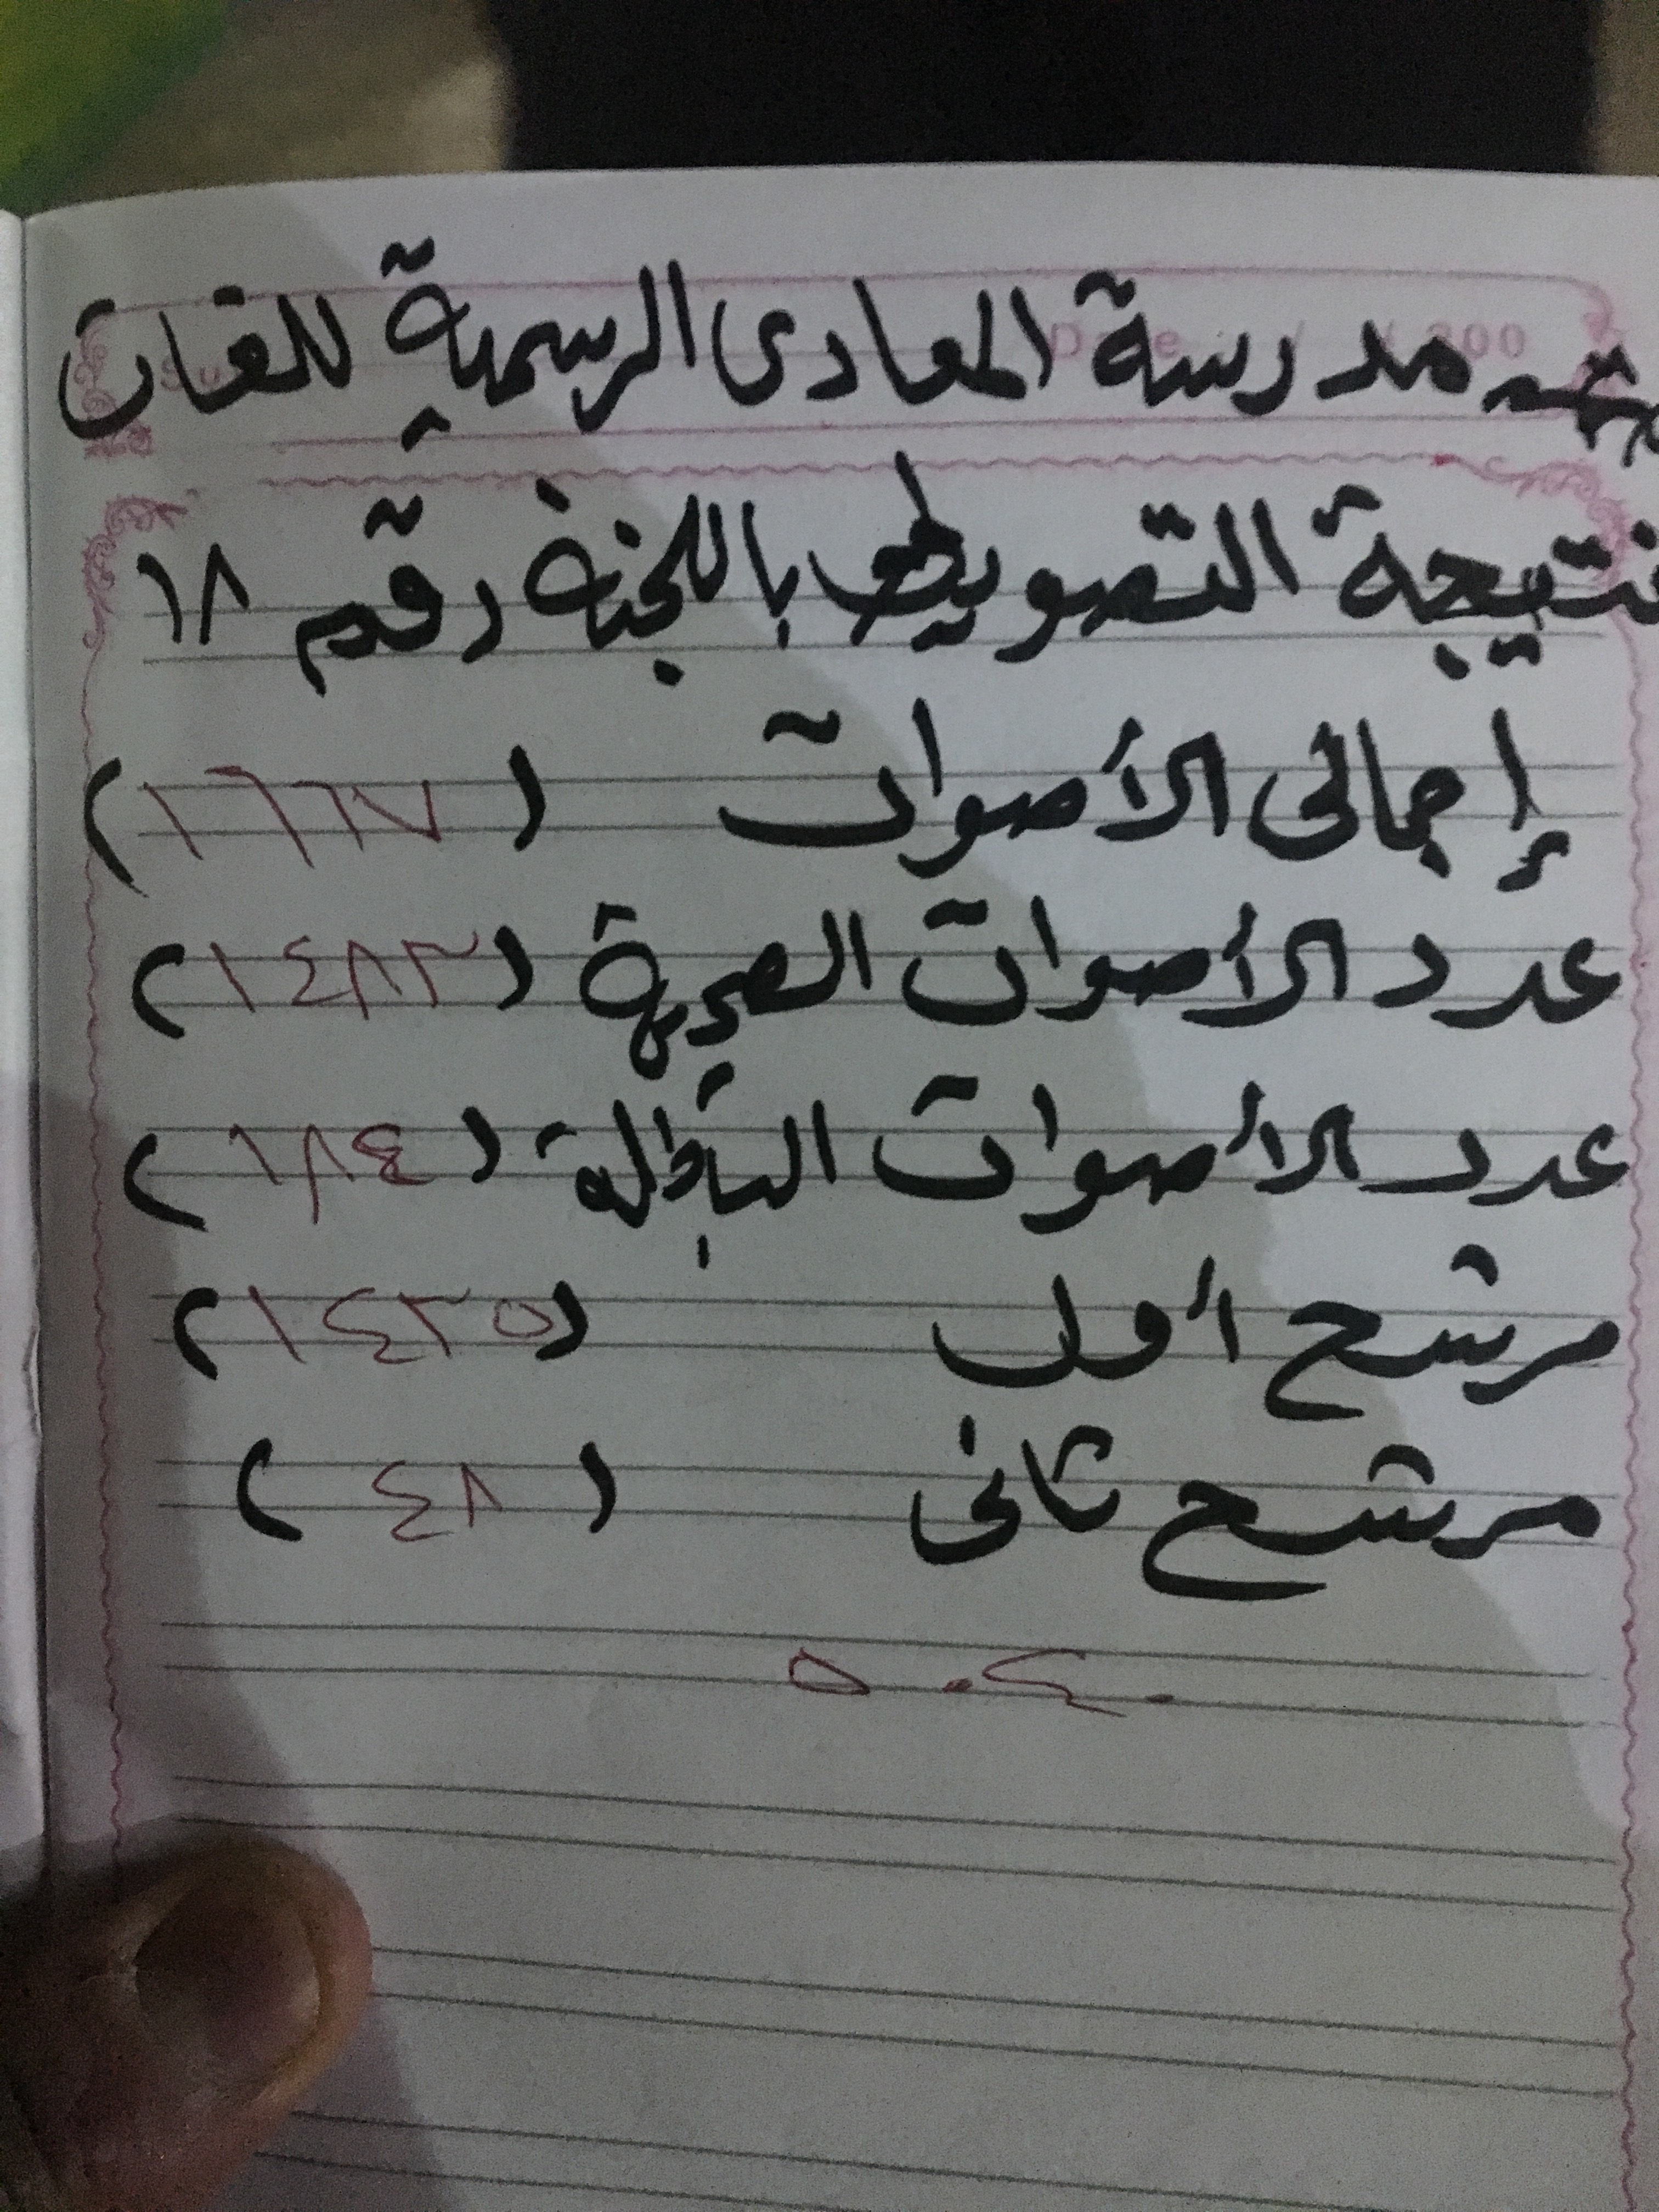 مدرسة المعادى الرسمية للغات
نتيجة التصويت باللجنة رقم ١٨
إجمالى الأصوات (١٦٦٧)
عدد الأصوات الصحيحة (١٤٨٣)
عدد الأصوات الباطلة (١٨٤)
مرشح أول (١٤٣٥)
مرشح ثانى (٤٨)